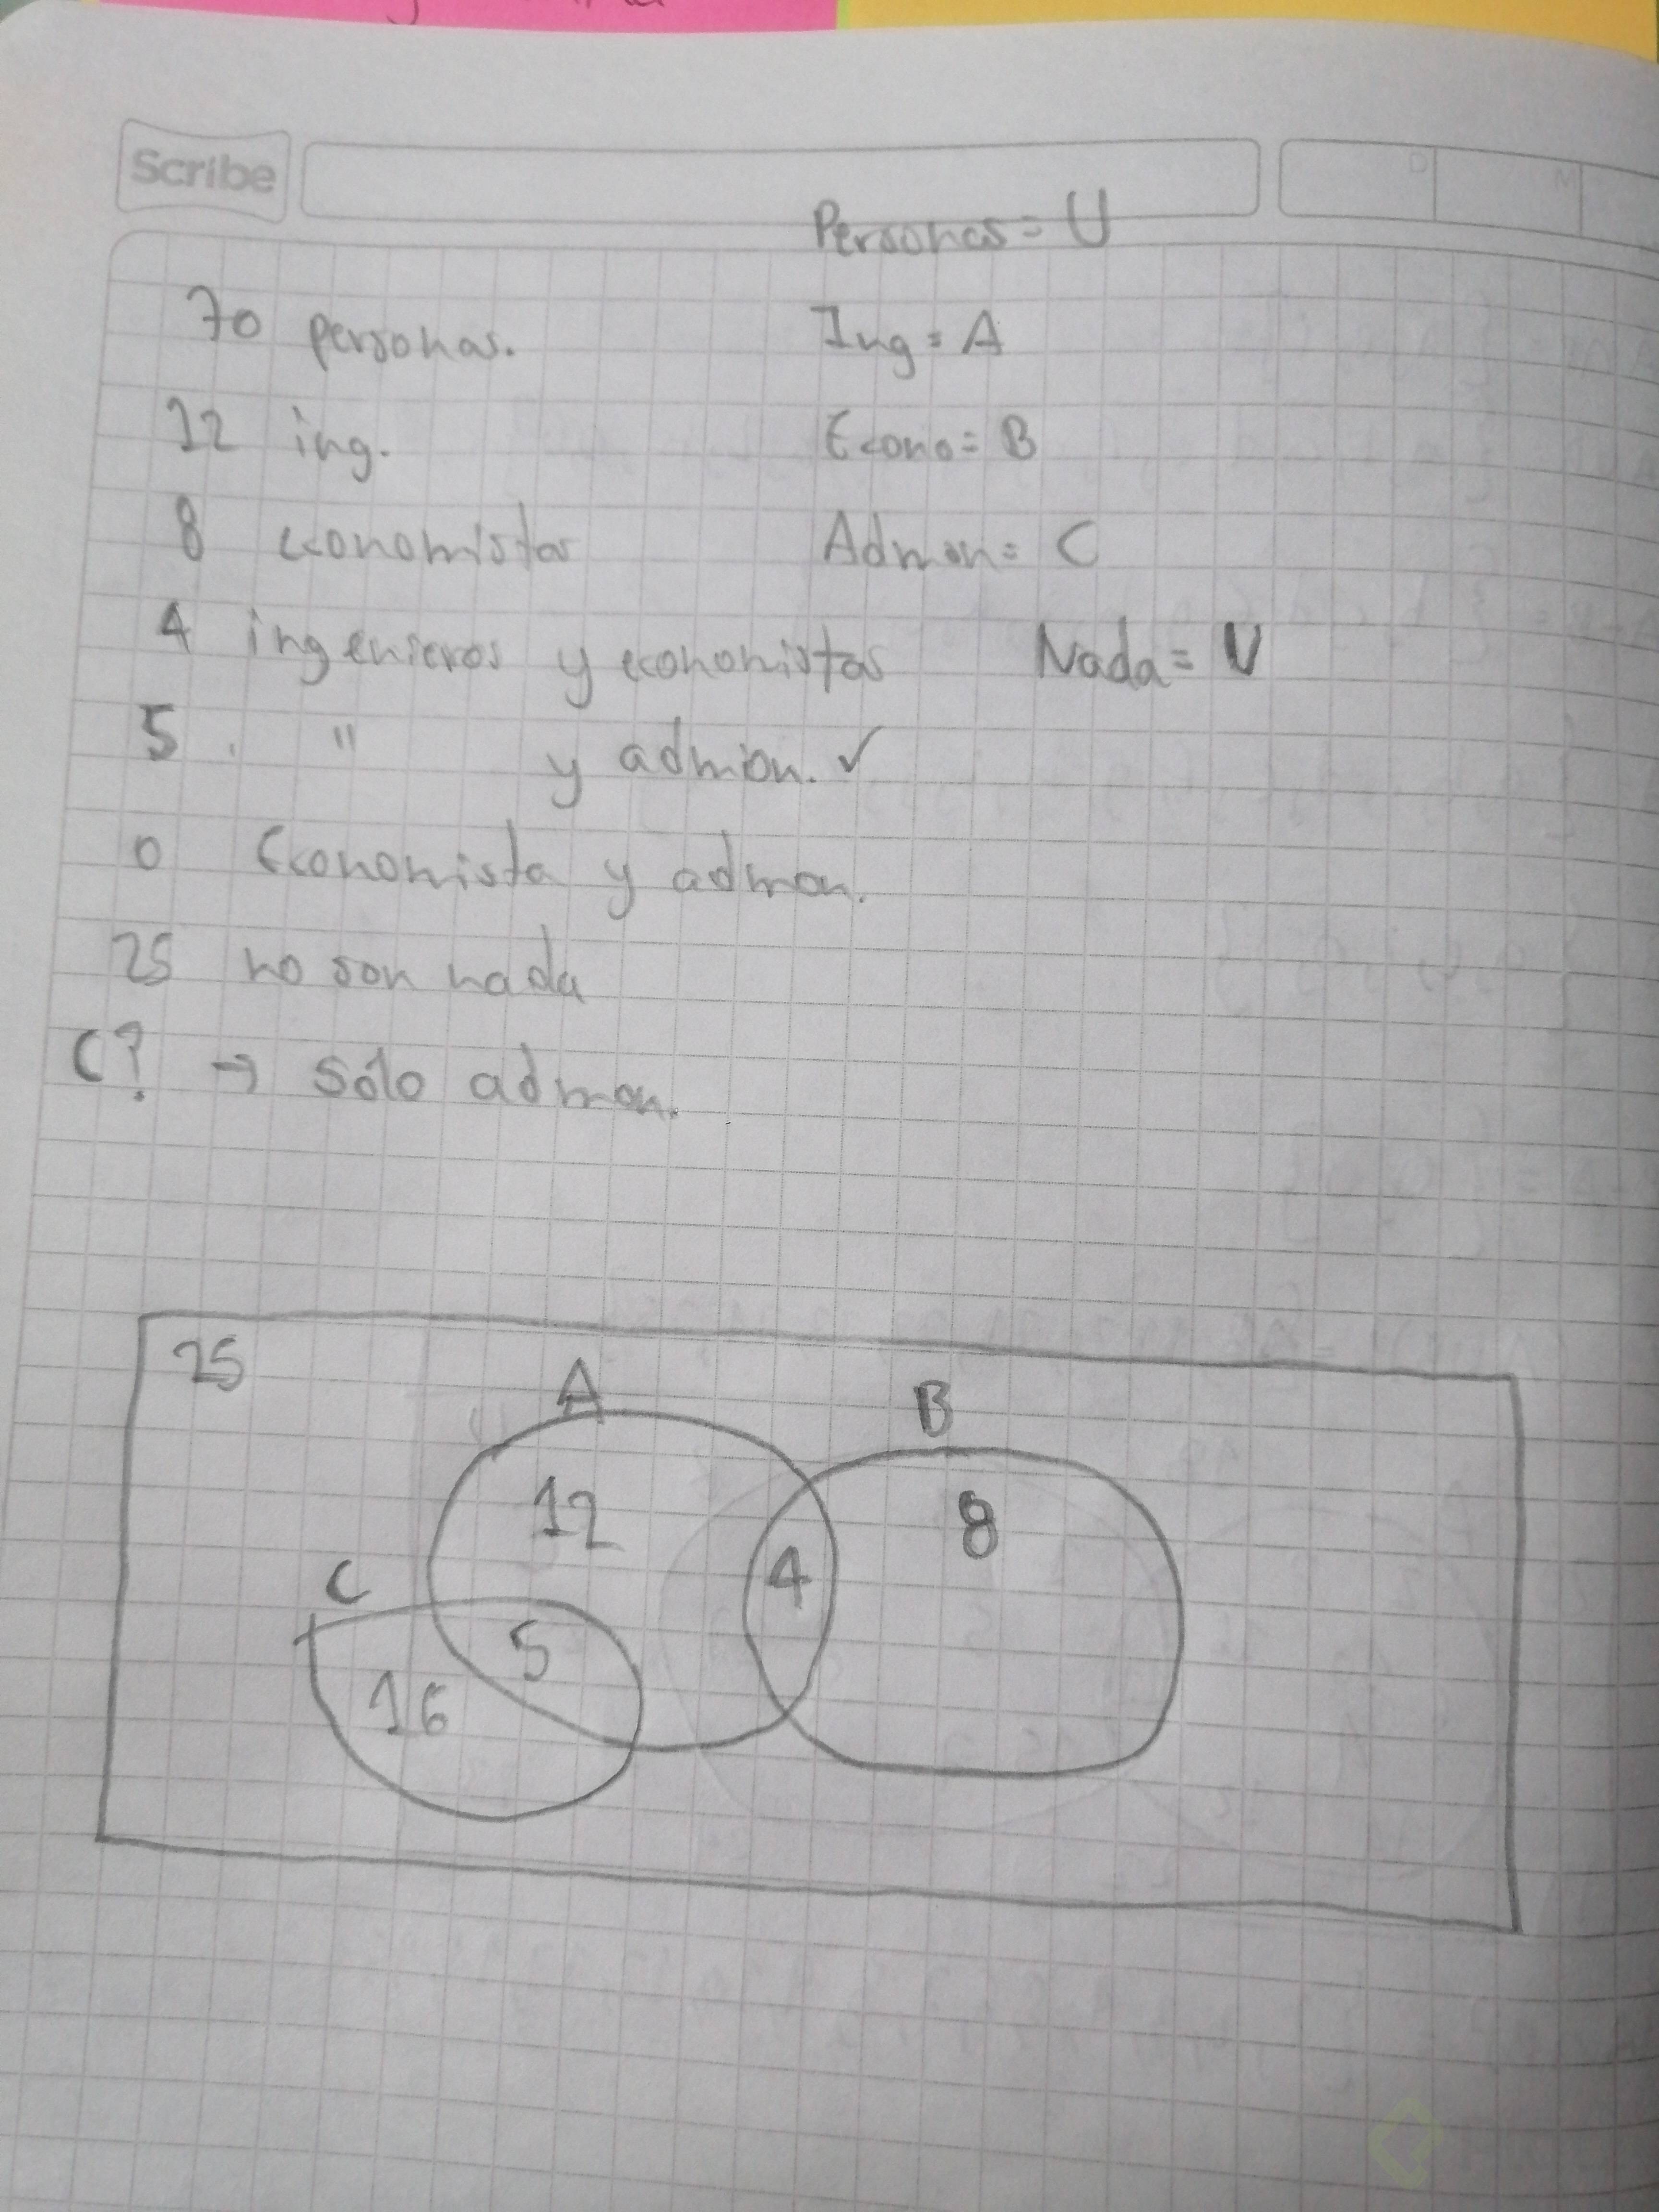 Scribe
Personas = U
70 personas.
Ing = A
12 ing.
Econo = B
8 economistas
Admon = C
4 ingenieros y economistas
Nada = U
5. " y admion. ✓
0 Economista y admon.
25 no son nada
C? → sólo admon.
25
A
B
12
8
C
4
5
16